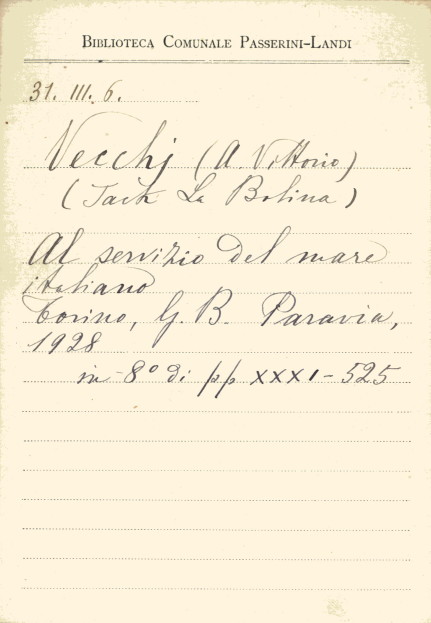 BIBLIOTECA COMUNALE PASSERINI-LANDI
31. III. 6.
Vecchj (A. Vittorio)
(Jack La Bolina)
Al servizio del mare
italiano
Torino, G. B. Paravia,
1928
in-8° di pp XXXI-525